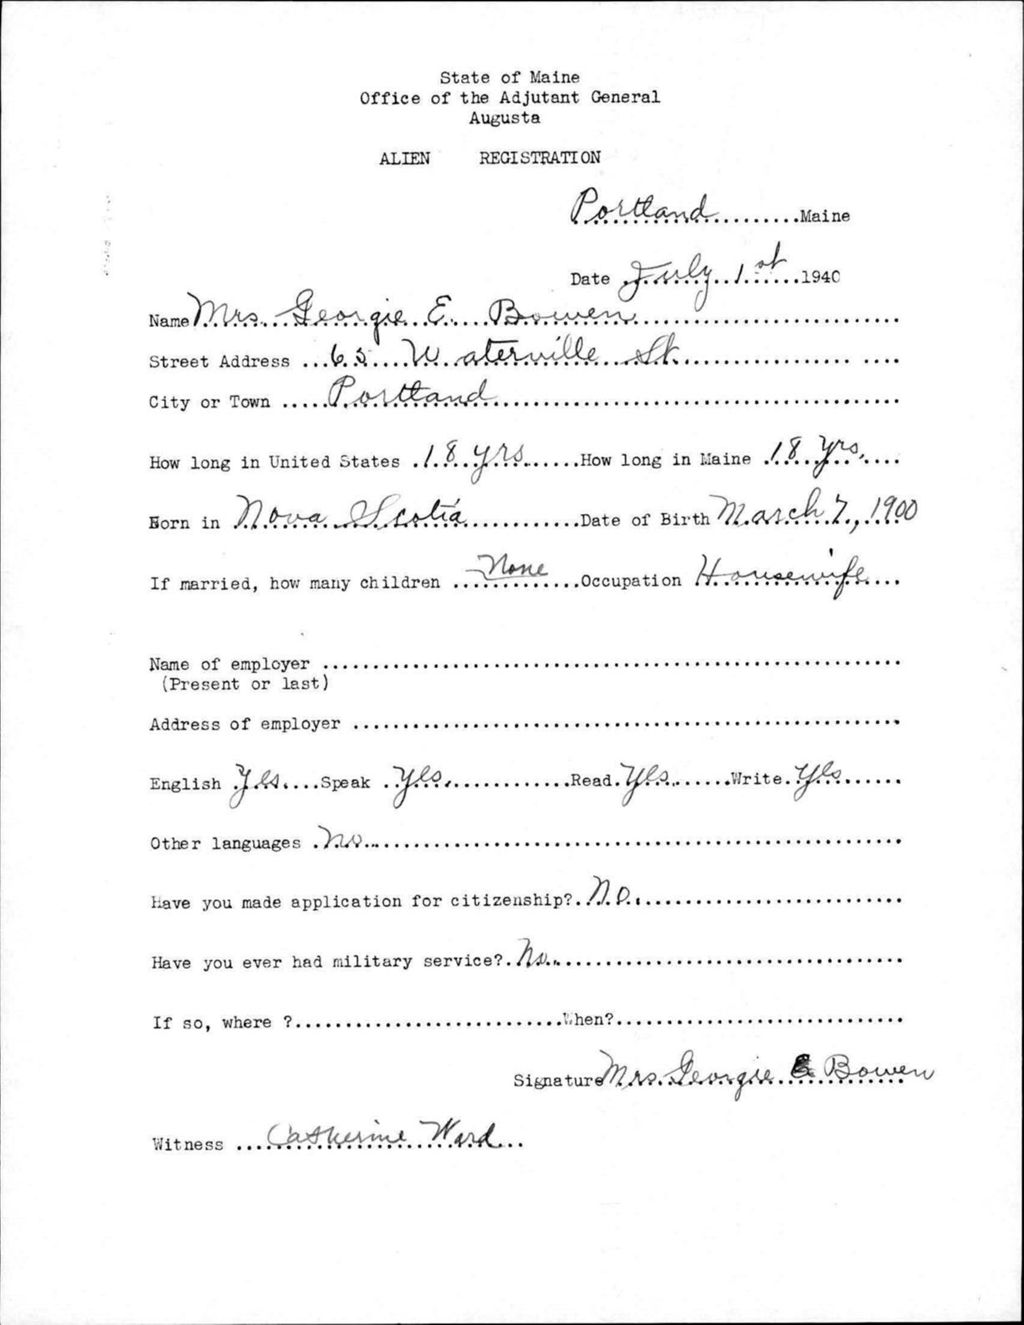 State of Maine
Office of the Adjutant General
Augusta
ALIEN REGISTRATION
Portland.........Maine
Date July 1st 1940
Name Mrs. Georgie E. Bowen
Street Address ...65 Waterville St.
City or Town .....Portland
How long in United States .18 yrs.......How long in Maine .18 yrs.
Born in Nova Scotia............Date of Birth March 7, 1900
If married, how many children ...None...Occupation Housewife...
Name of employer ..........................................................
(Present or last)
Address of employer .......................................................
English .Yes....Speak ..Yes............Read.Yes......Write.Yes......
Other languages .No...
Have you made application for citizenship?..No.
Have you ever had military service?.No...
If so, where ?...........................When?.............................
Signature Mrs. Georgie E Bowen
Witness ...Catherine Ward...